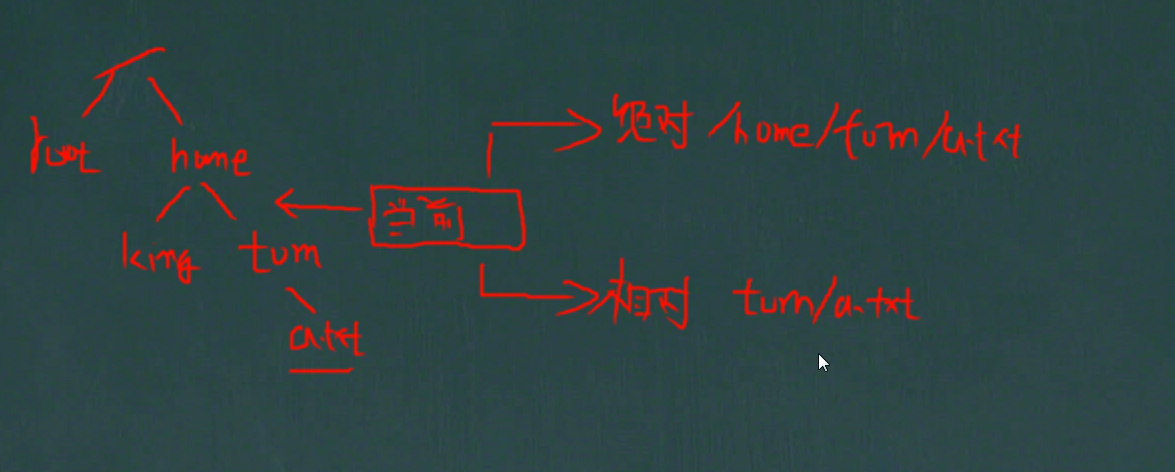 /
root home
king tom
a.txt
当前
绝对 /home/tom/a.txt
相对 tom/a.txt